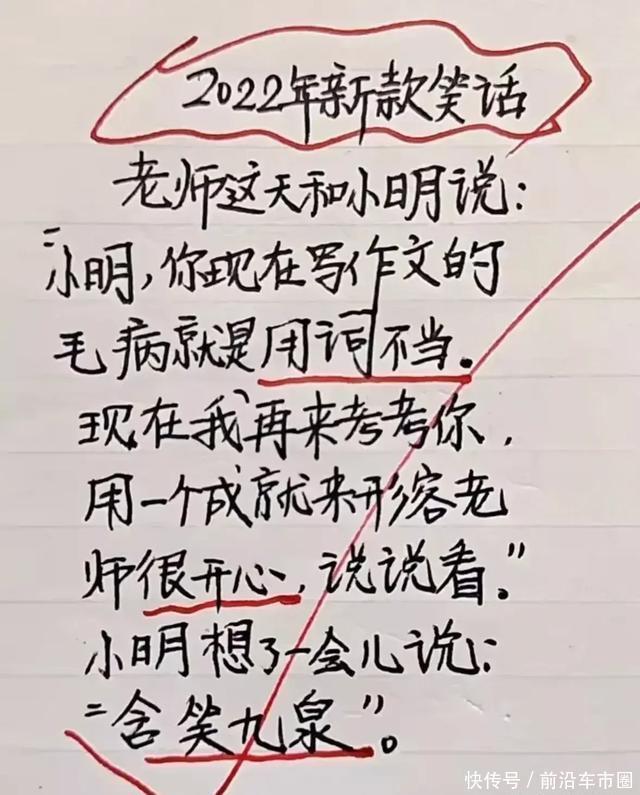 2022年新款笑话
老师这天和小明说:
"小明,你现在写作文的
毛病就是用词不当。
现在我再来考考你,
用一个成就来形容老
师很开心,说说看。"
小明想了一会儿说:
"含笑九泉"。
快传号/前沿车市圈